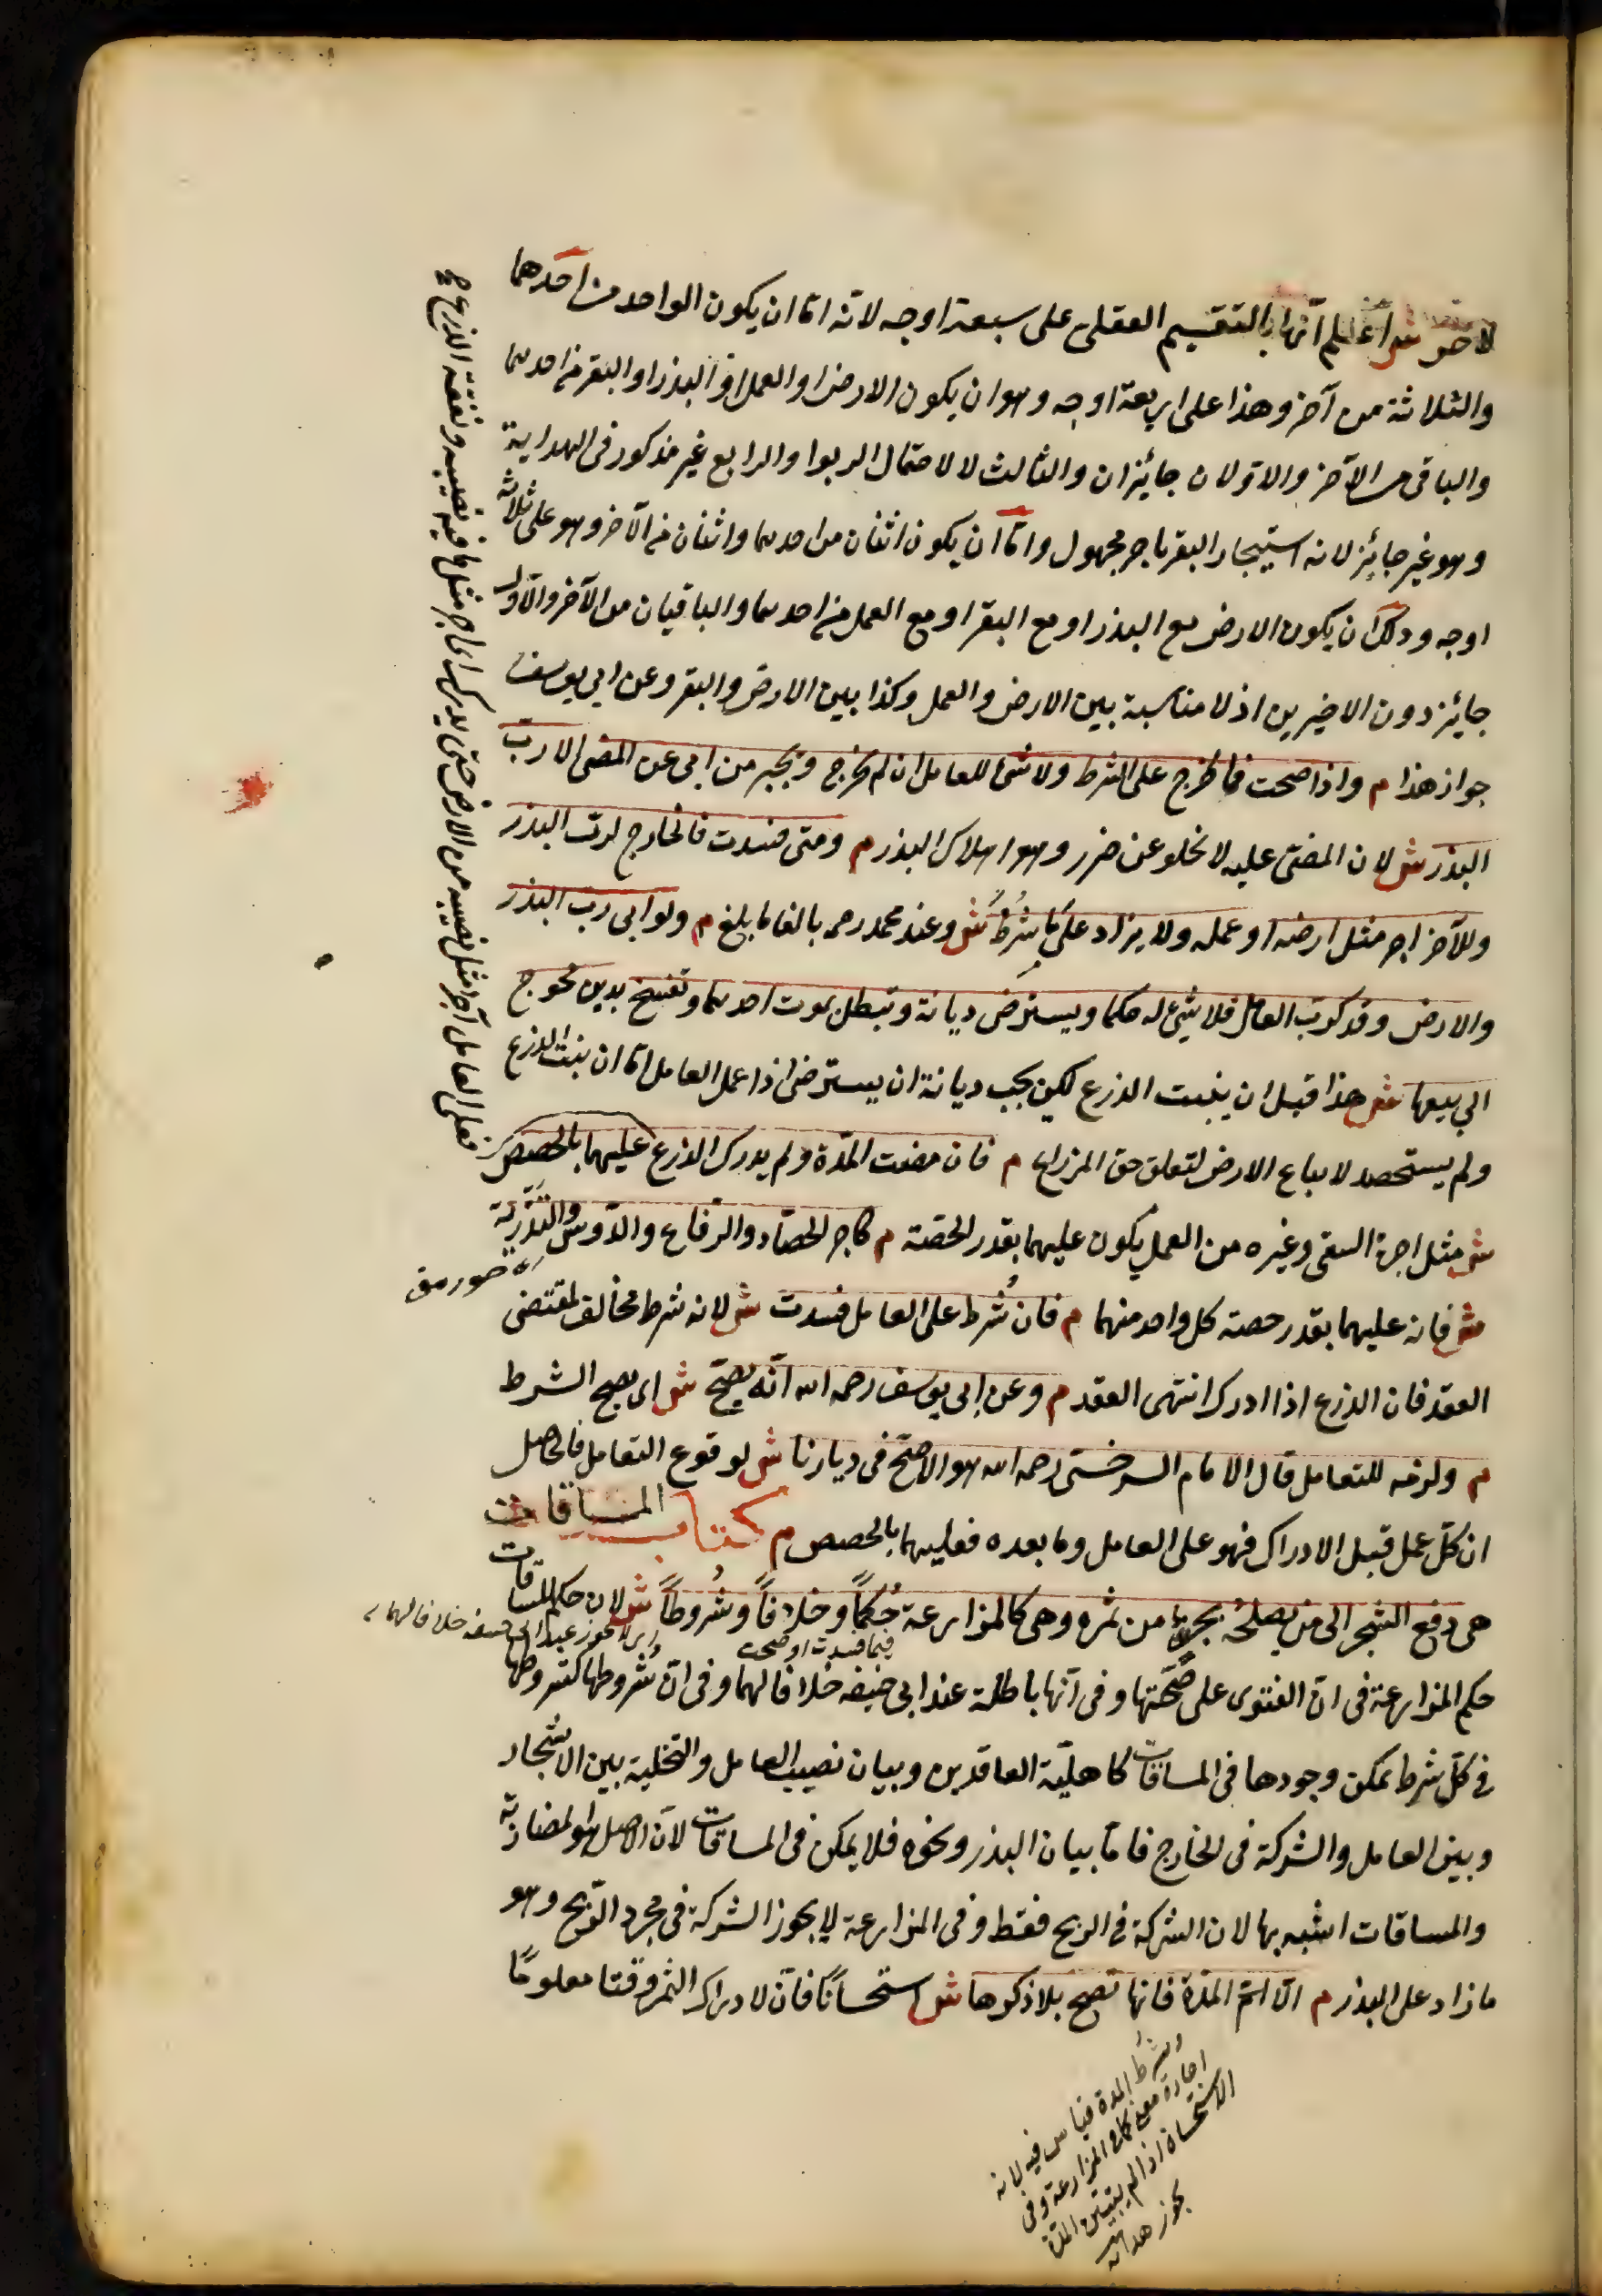 لآخر ش اعلم انها بالتقسيم العقلى على سبعة اوجه لانه اما ان يكون الواحد من احدهما
والثلاثة من آخر وهذا على اربعة اوجه وهو ان يكون الارض او العمل او البذر او البقر من احدهما
والباقى من الآخر والاولان جائزان والثالث لا لاحتمال الربوا والرابع غير مذكور فى الهداية
وهو غير جائز لانه استيجار البقر باجر مجهول واما ان يكون اثنان من احدهما واثنان من الآخر وهو على ثلاثة
اوجه وذلك ان يكون الارض مع البذر او مع البقر او مع العمل من احدهما والباقيان من الآخر والاول
جائز دون الاخيرين اذ لا مناسبة بين الارض والعمل وكذا بين الارض والبقر وعن ابى يوسف
جواز هذا م واذا صحت فالخارج على الشرط ولا شئ للعامل ان لم يخرج ويجبر من ابى عن المضى الا رب
البذر ش لان المضى عليه لا يخلو عن ضرر وهو اهلاك البذر م ومتى فسدت فالخارج لرب البذر
وللآخر اجر مثل ارضه او عمله ولا يزاد على ما شرط ش وعند محمد رحمه بالغا ما بلغ م ولو ابى رب البذر
والارض وقد كرب العامل فلا شئ له حكما ويسترضى ديانة وتبطل بموت احدهما وتفسخ بدين محوج
الى بيعها ش هذا قبل ان ينبت الزرع لكن يجب ديانة ان يسترضى اذا عمل العامل اما ان نبت الزرع
ولم يستحصد لا يباع الارض لتعلق حق المزارع م فان مضت المدة ولم يدرك الزرع عليهما بالحصص
ش مثل اجرة السقى وغيره من العمل يكون عليهما بقدر الحصة م كاجر الحصاد والرفاع والدوس والتذرية
ش فانه عليهما بقدر حصة كل واحد منهما م فان شرط على العامل فسدت ش لانه شرط مخالف لمقتضى
العقد فان الزرع اذا ادرك انتهى العقد م وعن ابى يوسف رحمه الله انه يصح ش اى يصح الشرط
م ولزمه للتعامل قال الامام السرخسى رحمه الله هو الاصح فى ديارنا ش لوقوع التعامل فالحاصل
ان كل عمل قبل الادراك فهو على العامل وما بعده فعليهما بالحصص م كتاب المساقات
هى دفع الشجر الى من يصلحه بجزء من ثمره وهى كالمزارعة حكما وخلافا وشروطا ش لان حكم المساقات
حكم المزارعة فى ان الفتوى على صحتها وفى انها باطلة عند ابى حنيفه خلافا لهما وفى ان شروطها كشروطها
فى كل شرط يمكن وجودها فى المساقات كاهلية العاقدين وبيان نصيب العامل والتخلية بين الاشجار
وبين العامل والشركة فى الخارج فاما بيان البذر ونحوه فلا يمكن فى المساقات لان الاصل هو المضاربة
والمساقات اشبه بها لان الشركة فى الربح فقط وفى المزارعة لا يجوز الشركة فى مجرد الربح وهو
ما زاد على البذر م الا ان المدة فانها تصح بلا ذكرها ش استحسانا فان لادراك الثمر وقتا معلوما
فعلى العامل آجر مثل نصيبه من الارض حتى يدرك اى اجر مثل ما فيه نصيبه ونفقة الزرع
فيما فسدت او صحت
خلافا لهما
وشرط المدة قياس فيه لانه
اجارة معنى كما فى المزارعة وفى
الاستحسان اذا لم يبين المدة
يجوز هدايه